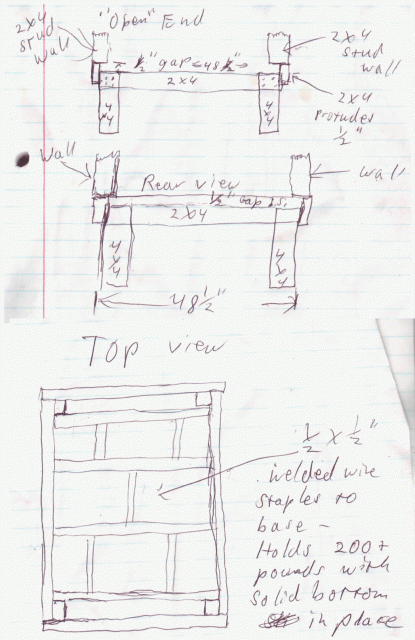 "Open" End
2x4
stud
wall
2x4
stud
wall
1/2" gap 48 1/2"
2x4
2x4
Protudes
1/2"
4x4
4x4
wall
wall
Rear view
1/2" Gap
2x4
4x4
4x4
48 1/2"
Top view
1/2 x 1/2"
welded wire
staples to
base -
Holds 200+
pounds with
solid bottom
in place